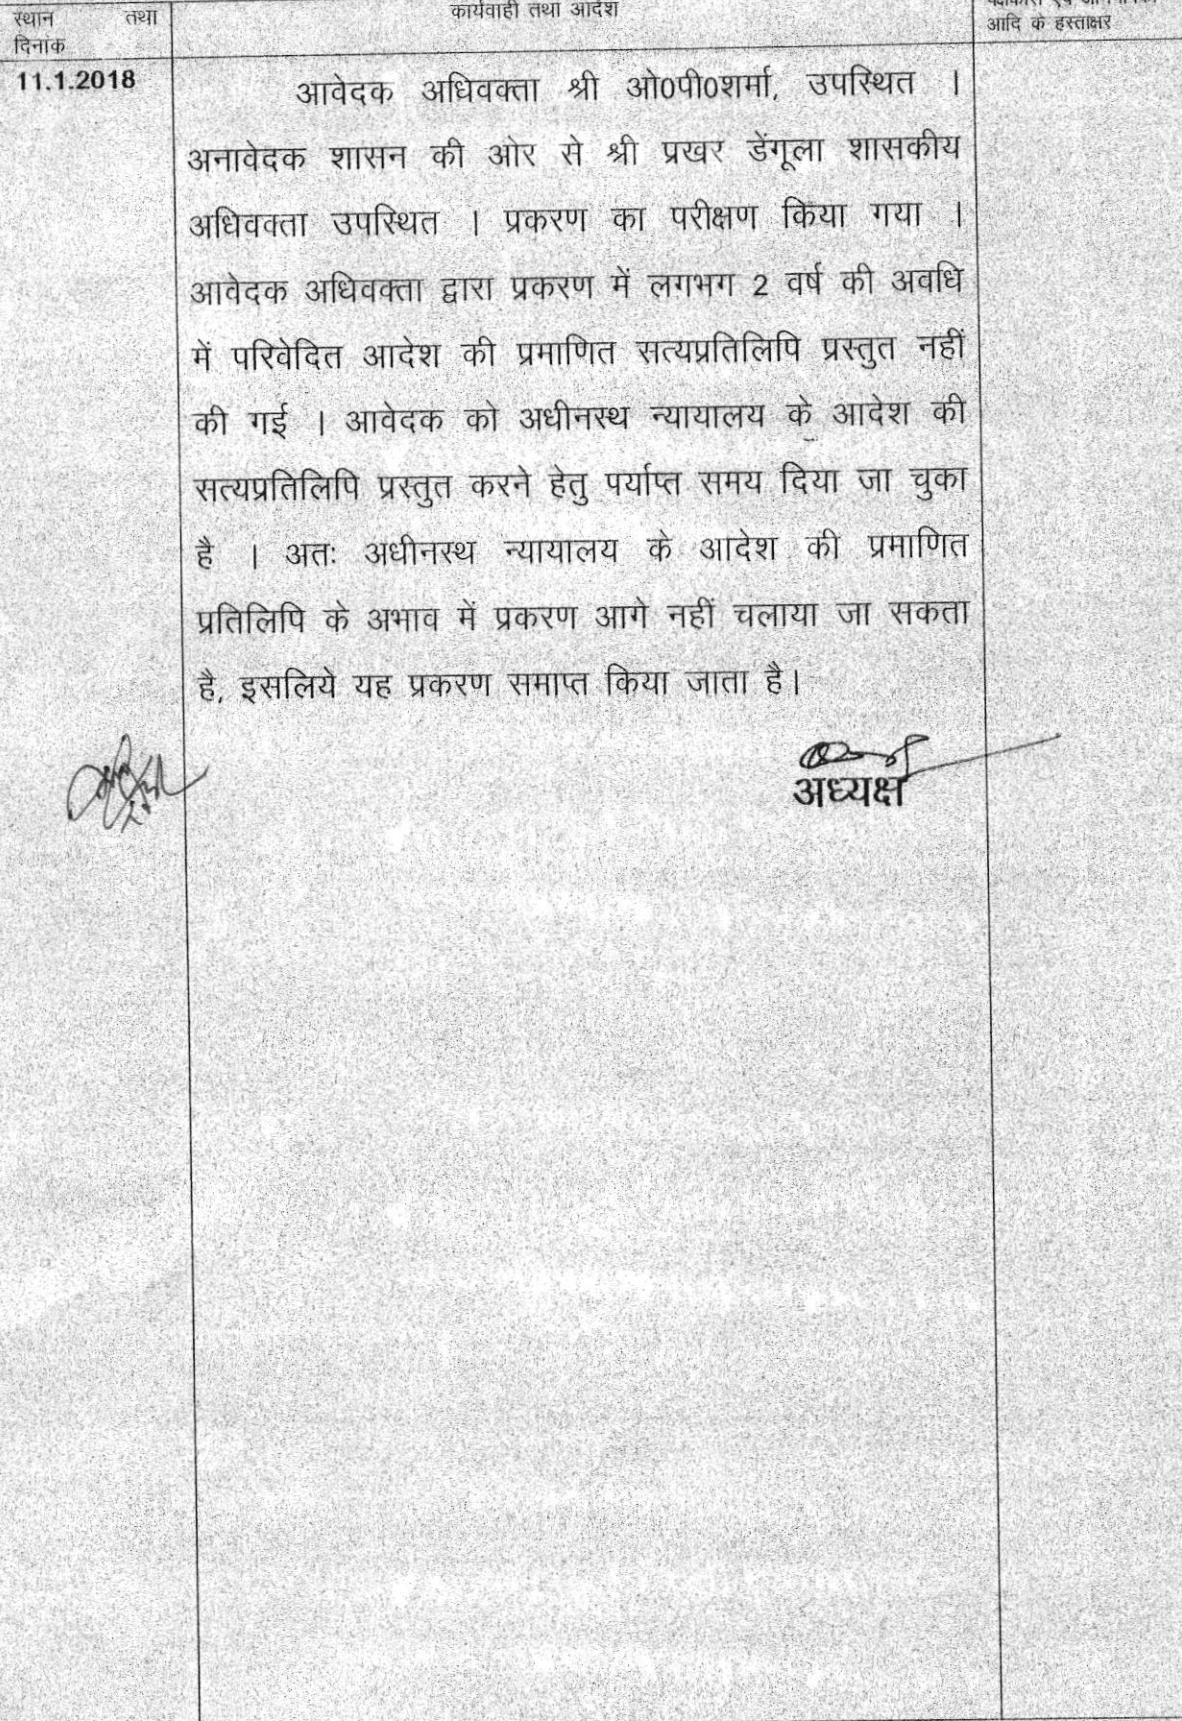 स्थान तथा
दिनांक
कार्यवाही तथा आदेश
आदि के हस्ताक्षर
11.1.2018
आवेदक अधिवक्ता श्री ओ0पी0शर्मा, उपस्थित ।
अनावेदक शासन की ओर से श्री प्रखर डेंगूला शासकीय
अधिवक्ता उपस्थित । प्रकरण का परीक्षण किया गया ।
आवेदक अधिवक्ता द्वारा प्रकरण में लगभग 2 वर्ष की अवधि
में परिवेदित आदेश की प्रमाणित सत्यप्रतिलिपि प्रस्तुत नहीं
की गई । आवेदक को अधीनस्थ न्यायालय के आदेश की
सत्यप्रतिलिपि प्रस्तुत करने हेतु पर्याप्त समय दिया जा चुका
है । अतः अधीनस्थ न्यायालय के आदेश की प्रमाणित
प्रतिलिपि के अभाव में प्रकरण आगे नहीं चलाया जा सकता
है, इसलिये यह प्रकरण समाप्त किया जाता है।
अध्यक्ष